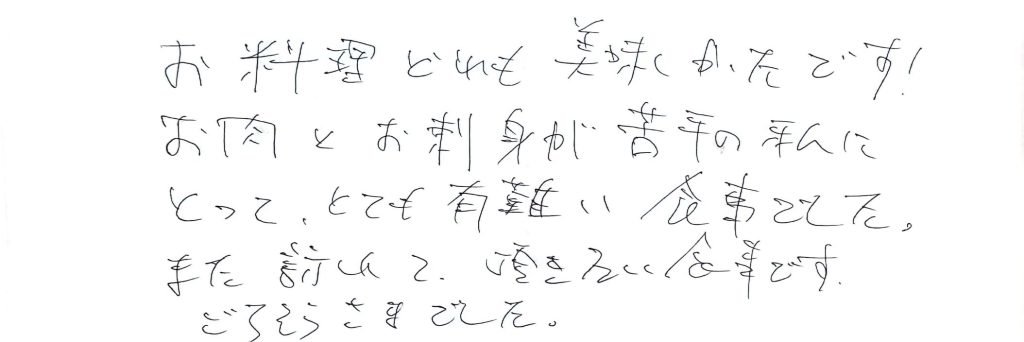 お料理どれも美味しかったです!
お肉とお刺身が苦手の私に
とって、とても有難い食事でした。
また訪れて、頂きたい食事です.
ごちそうさまでした。